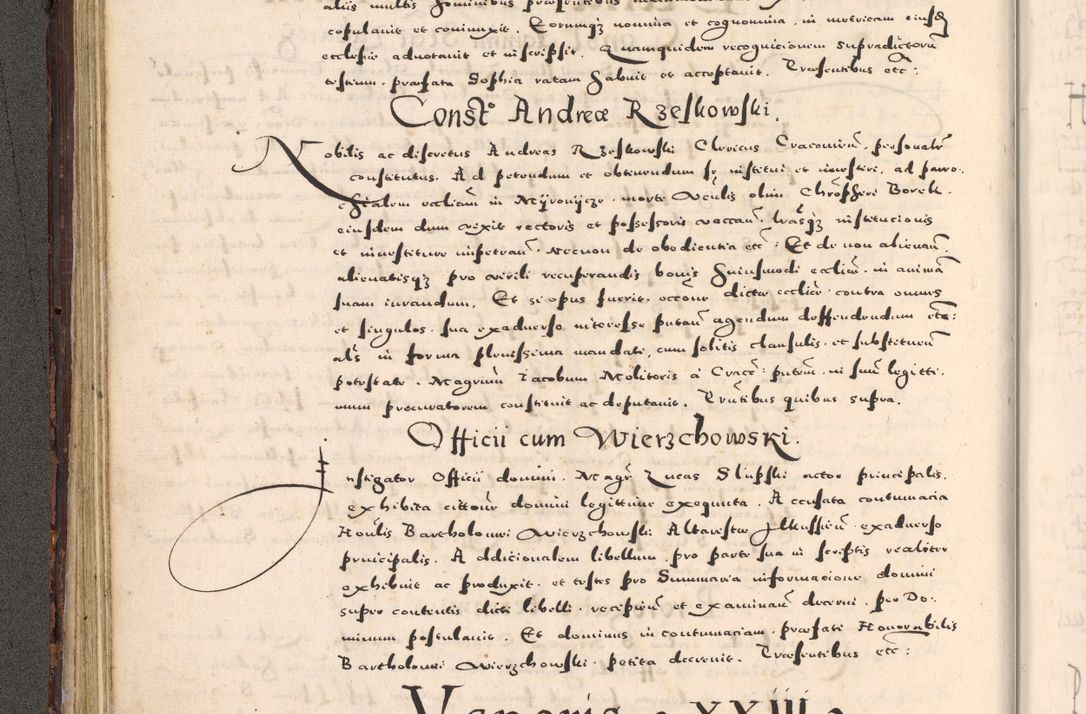 aliis multis hominibus præsentibus
copulavit et coniunxit. Eorumqz nomina et cognomina in metricam eiusd
ecclesiæ adnotavit et inscripsit. Quamquidem recognicionem supradictorū
testium. præfata Sophia ratam habuit et acceptavit. Præsentibus etc:
Const° Andreæ Rzeskowski.
Nobilis ac discretus Andreas Rzeskowski Clericus Cracovien̄. personalr̄
constitutus. Ad petendum et obtinendum se institui et investiri. ad parro.
chialem eccliam in Myronycze. morte Veñlis olim Chrōpheri Borek.
eiusdem dum vixit rectoris et possessoris vaccañ. lrasqz institucionis
et investituræ impetrañ. Necnon de obedientia etc: Et de non alienañ.
alienatisqz pro virili recuperandis bonis huiusmodi eccliæ. in animā
suam iurandum. Et si opus fuerit. occone dictæ eccliæ. contra omnes
et singulos. sua exadverso interesse putañ agendum deffendendum etc:
aliis in forma plenissima mandati, cum solitis clausulis. et substituen̄
potestate. Magrum Iacobum Molitoris à Cracc: pñtem. in suū legitti.
mum procuratorem constituit ac deputavit. Præsentibus quibus supra.
Officii cum Wierzchowski.
Instigator Officii domini. Magr̄ Lucas Slupski actor principalis.
exhibita cittōne domini legittime exequuta. Accusata contumacia
Honlis Bartholomei Wierzchowski Altaristæ Ilkussien̄. exadverso
principalis. Addicionalem libellum pro parte sua in scriptis realiter
exhibuit ac produxit. et testes pro Summaria informacione domini
super contentis dicti libelli. recipien̄ et examinañ decerni. per Do.
minum postulavit. Et dominus in contumaciam præfati Honorabilis
Bartholomei Wierzchowski. petita decrevit. Præsentibus etc:
Veneris XXIIII